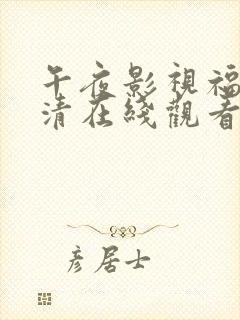 午夜影視福
清在綫觀看
彦居士